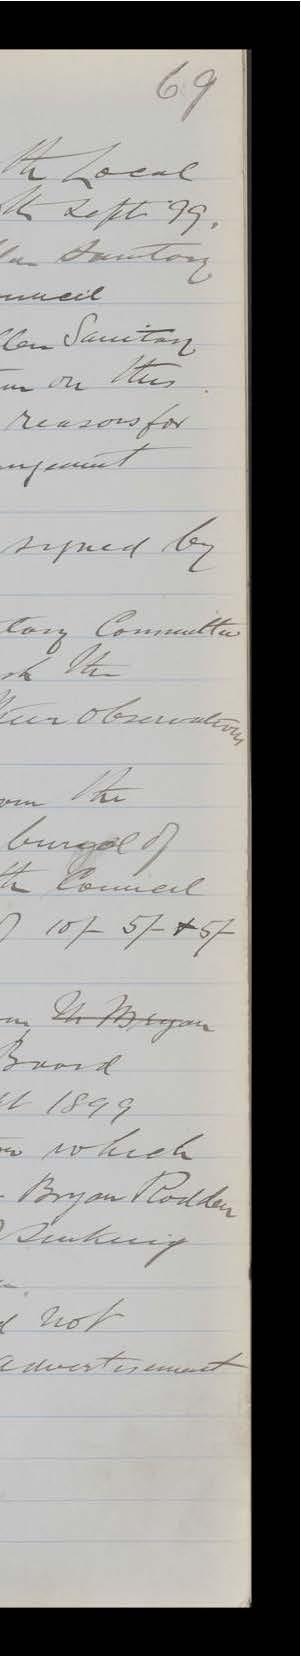 69
th Local
th Sept 99.
Sanitary
ouncil
llen Sanitary
on this
reasons for
angement
signed by
tary Committee
sk the
their observations
om the
burial of
th Council
10/- 5/- + 5/-
Bryan
Board
1899
which
Bryan Rodden
sinking
d not
advertisement